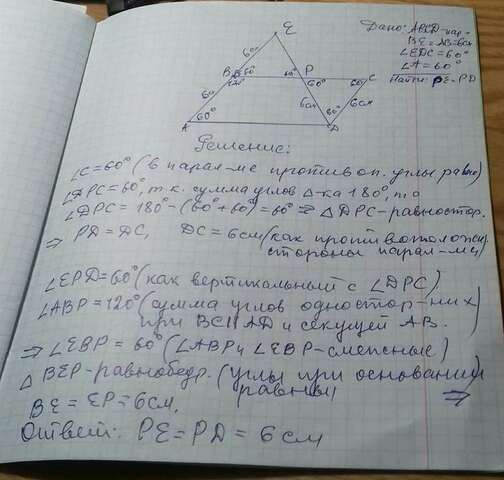 Дано: ABCD-пар-
BE=AB=6см
∠EDC=60°
∠A=60°
Найти: PE-PD
E
6см
B 60° 60° P 60° C
120° 60°
6см 6см 6см
A 60° 60° D
Решение:
∠C=60° (в парал-ме противоп. углы равны)
∠DPC=60°, т.к. сумма углов Δ-ка 180°, то
∠DPC = 180°-(60°+60°)=60° ⇒ ΔDPC-равностор.
⇒ PD=DC, DC=6см (как противополож.
стороны парал-ма)
∠EPD=60° (как вертикальный с ∠DPC)
∠ABP=120° (сумма углов одностор-них
при BC∥AD и секущей AB.
⇒ ∠EBP=60° (∠ABP и ∠EBP-смежные)
Δ BEP-равнобедр. (углы при основании
равны) ⇒
BE=EP=6см.
Ответ: PE=PD=6см